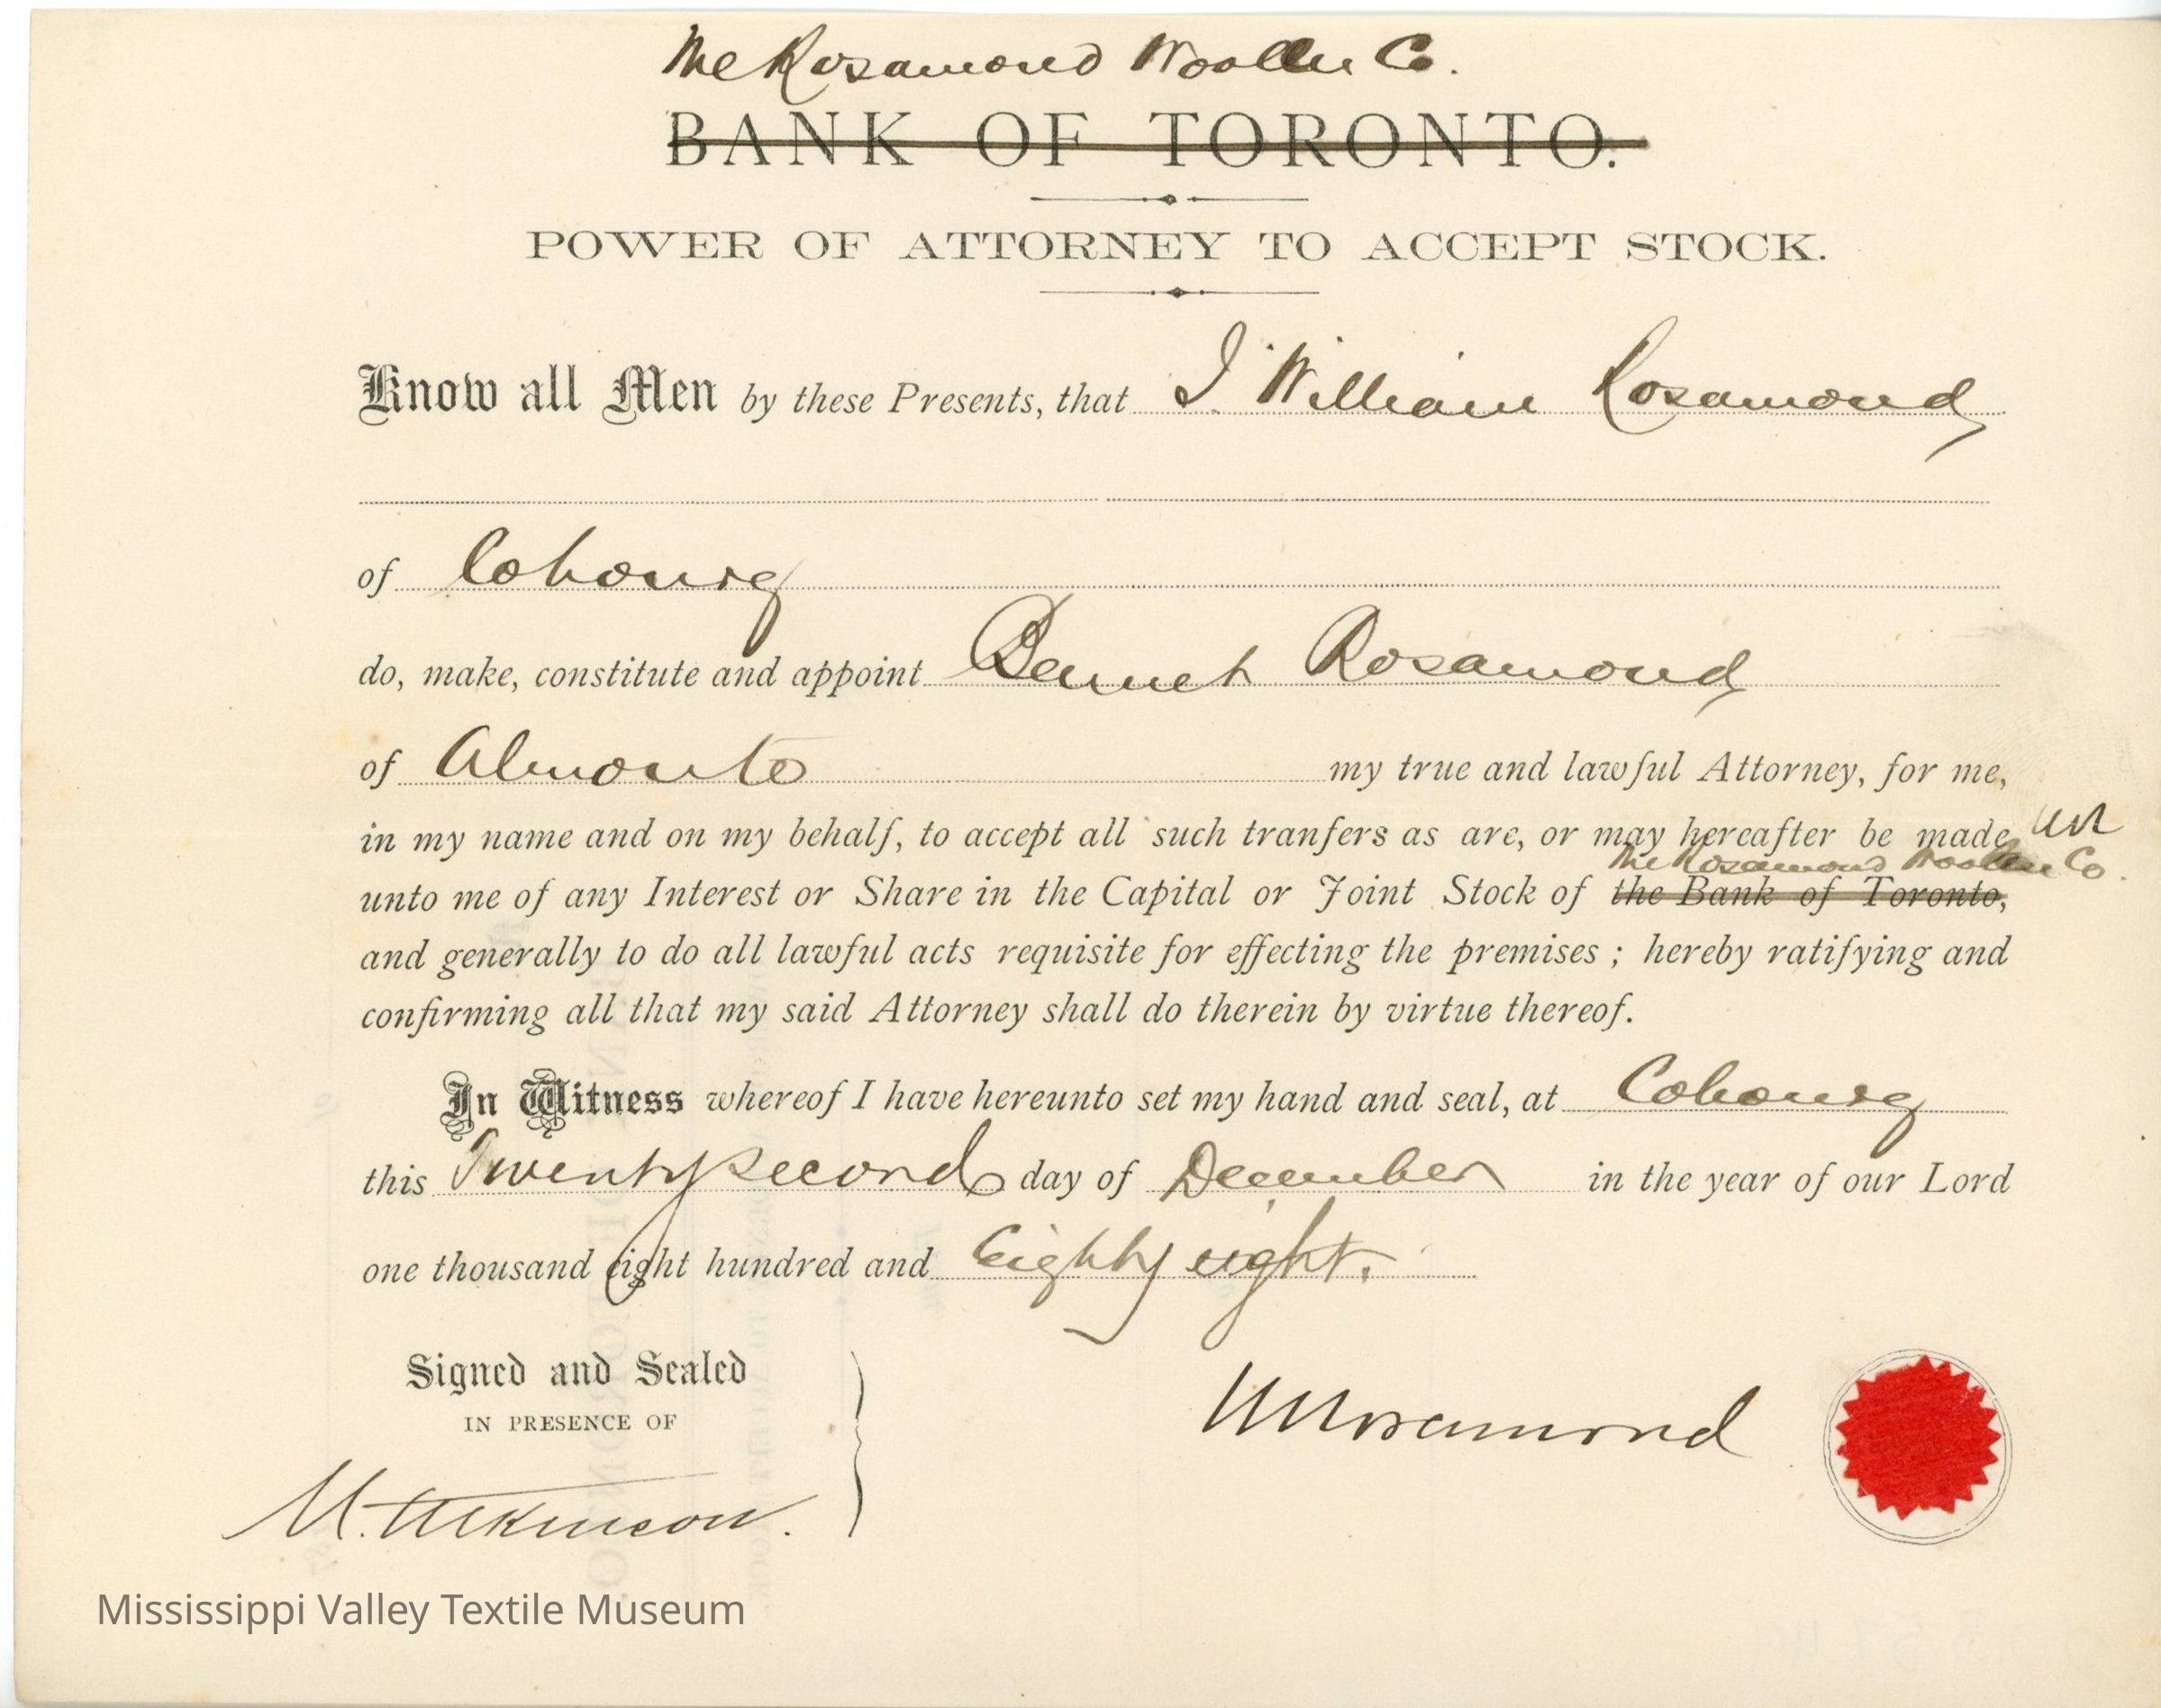 The Rosamond Woollen Co.
BANK OF TORONTO.
POWER OF ATTORNEY TO ACCEPT STOCK.
Know all Men by these Presents, that I William Rosamond
of Cobourg
do, make, constitute and appoint Bennet Rosamond
of Almonte my true and lawful Attorney, for me,
in my name and on my behalf, to accept all such tranfers as are, or may hereafter be made WR
The Rosamond Woollen Co.
unto me of any Interest or Share in the Capital or Joint Stock of the Bank of Toronto,
and generally to do all lawful acts requisite for effecting the premises ; hereby ratifying and
confirming all that my said Attorney shall do therein by virtue thereof.
In Witness whereof I have hereunto set my hand and seal, at Cobourg
this Twenty second day of December in the year of our Lord
one thousand eight hundred and Eighty eight.
Signed and Sealed
IN PRESENCE OF
WRosamond
M. Atkinson.
Mississippi Valley Textile Museum